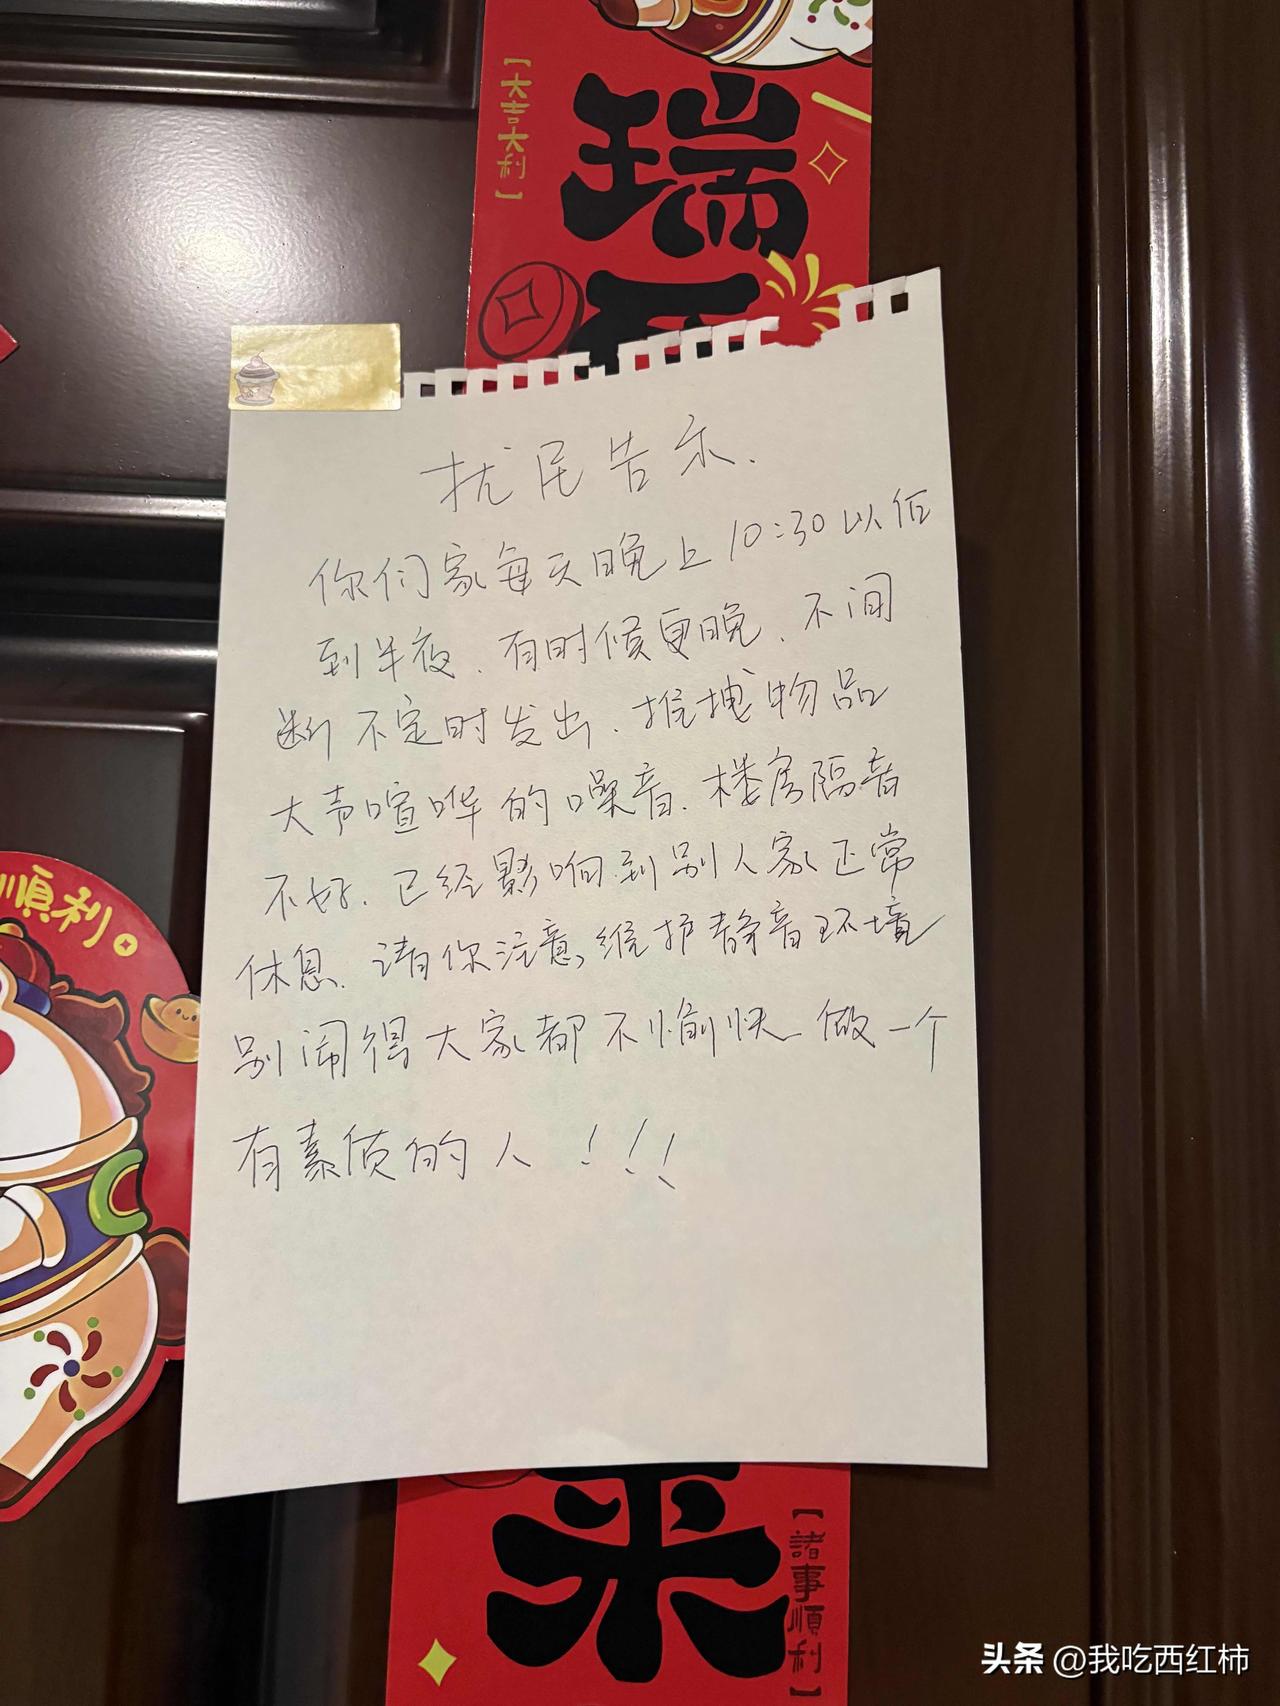 【大吉大利】
瑞
扰民告示.
你们家每天晚上10:30以后
到半夜、有时候更晚、不间
断不定时发出、推拽物品
大声喧哗的噪音.楼房隔音
不好.已经影响到别人家正常
休息.请你注意,维护静音环境
别闹得大家都不愉快.做一个
有素质的人!!!
順利
来
【諸事順利】
头条 @我吃西红柿